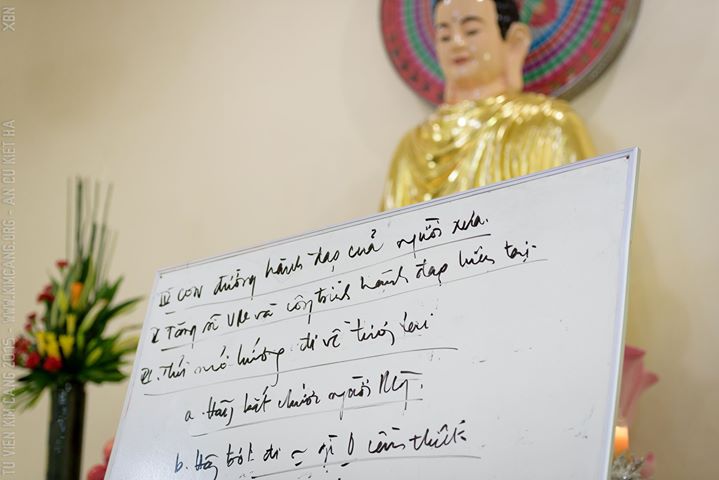 IV CON đường hành đạo của người xưa.
V. Tăng sĩ VN và công trình hành đạo hiện tại.
VI. Thử mở hướng đi về tương lai
a. Hãy bắt chước người Mỹ.
b. Hãy bớt đi gì cần thiết
XBN
TU VIEN KIM CANG 2005 - WWW.KIMCANG.ORG - AN CU KIET HA